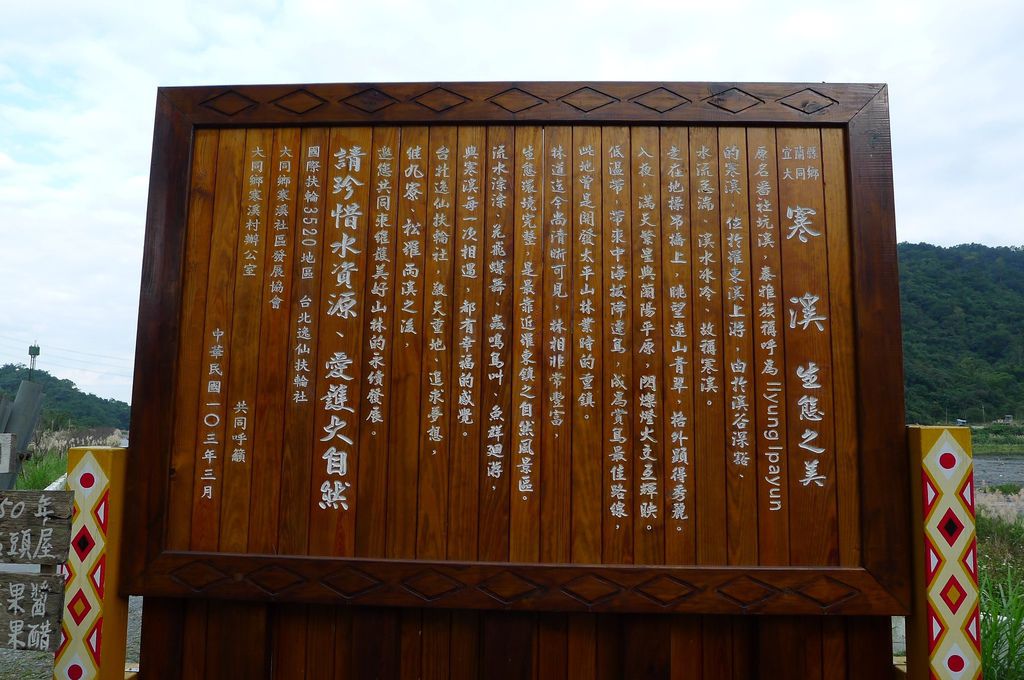 宜蘭縣
大同鄉
寒溪生態之美
原名番社坑溪，泰雅族稱呼為 llyung lpayun
的寒溪，位於羅東溪上游，由於溪谷深豁、
水流急湍，溪水冰冷，故稱寒溪。
走在地標吊橋上，眺望遠山青翠，格外顯得秀麗。
入夜，滿天繁星與蘭陽平原，閃爍燈火交互輝映。
低溫帶，帶來中海拔降遷鳥，成為賞鳥最佳路線，
此地曾是開發太平山林業時的重鎮。
林道迄今尚清晰可見，林相非常豐富，
生態環境完整，是最靠近羅東鎮之自然風景區。
流水淙淙、花飛蝶舞、蟲鳴鳥叫、魚群迴游，
與寒溪每一次相遇，都有幸福的感覺。
台北逸仙扶輪社，敬天重地、追求夢想，
繼九寮、松羅兩溪之後，
邀您共同來維護美好山林的永續發展。
請珍惜水資源、愛護大自然
國際扶輪3520地區 台北逸仙扶輪社
大同鄉寒溪社區發展協會
大同鄉寒溪村辦公室
共同呼籲
中華民國一０三年三月
50年
頭屋
果醬
果醋